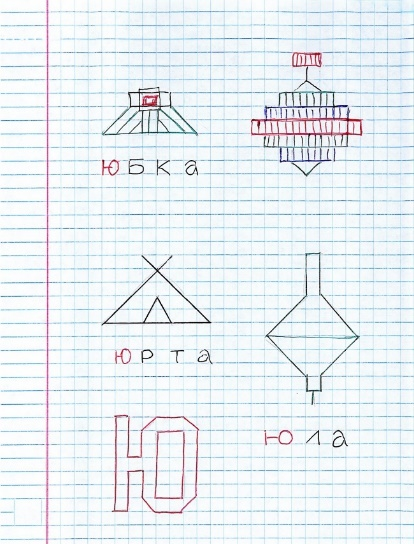 Юбка
Юрта
Юла
Ю